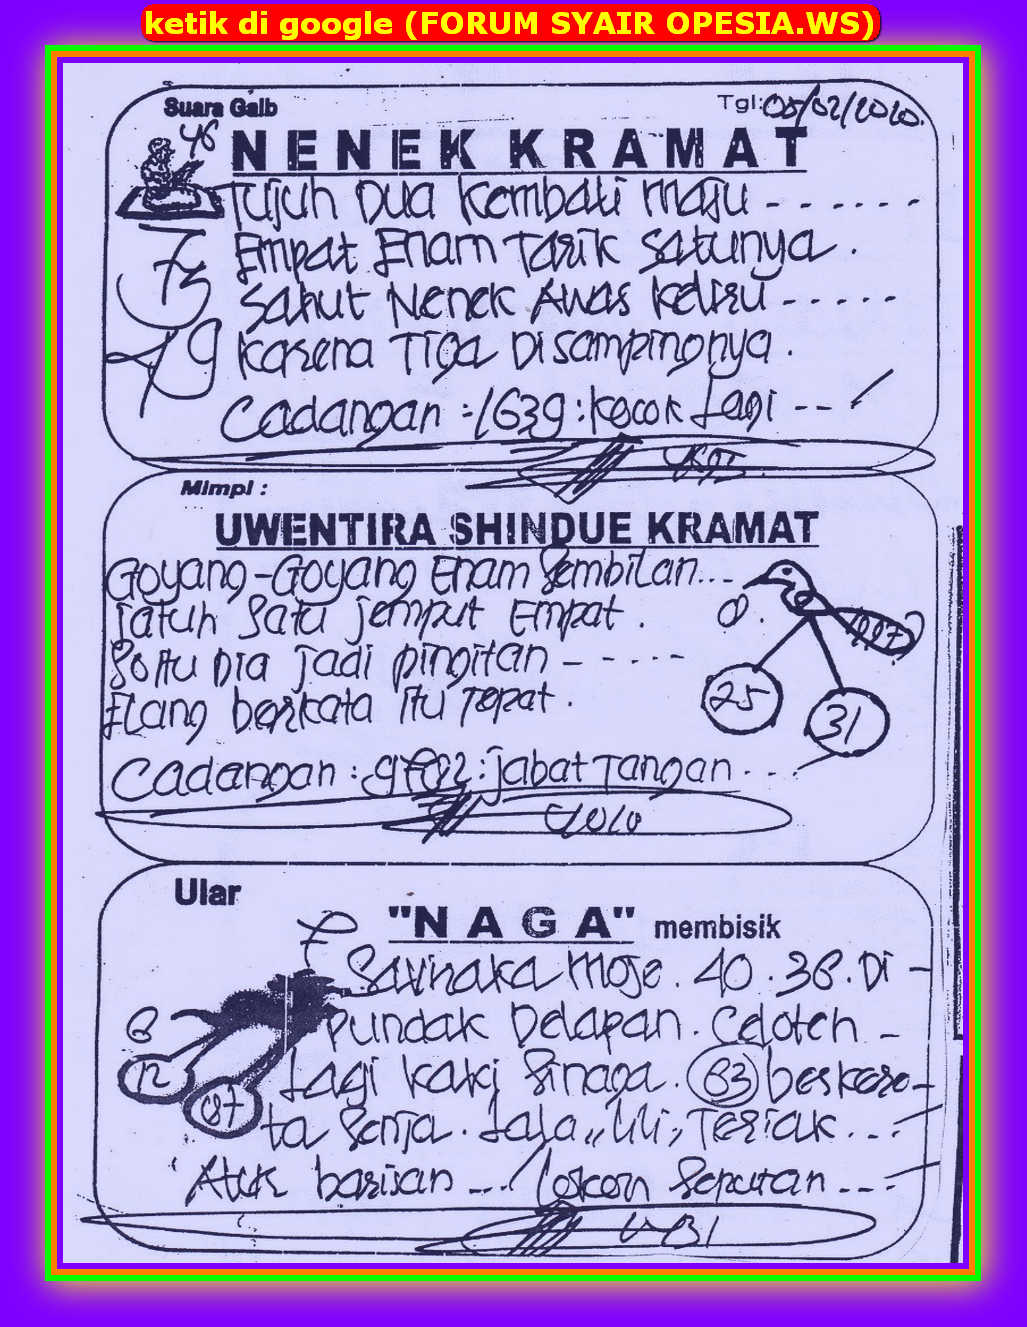 ketik di google (FORUM SYAIR OPESIA.WS)
Suara Gaib
Tgl: 05/02/2020.
46
NENEK KRAMAT
Tujuh Dua Kembali Maju -------
Empat Enam Tarik Satunya.
Sahut Nenek Awas Keliru -----
Karena Tiga Disampingnya.
Cadangan : 1639 : Kocok Lagi ---
Mimpi :
UWENTIRA SHINDUE KRAMAT
Goyang-Goyang Enam Sembilan...-
Jatuh Satu Jemput Empat.
Jadi pingitan -----
Elang berkata itu Tepat.
25
31
Cadangan : : Jabat Tangan . - - -
Ular
"NAGA" membisik
Moje. 40. 36. Di -
Pundak Delapan. Celoteh -
Lagi kaki Sinaga. 63
12
87
Senja. Teriak . . .
barisan ...